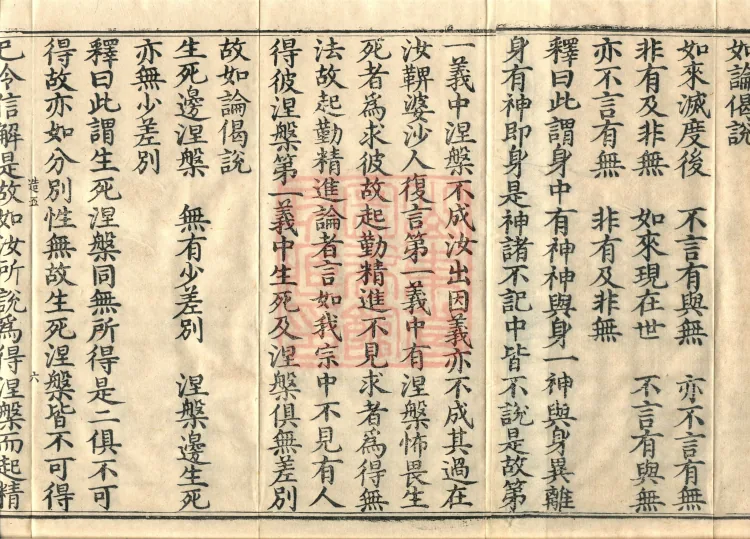 如論偈説
如來滅度後　不言有與無　亦不言有無
非有及非無　如來現在世　不言有與無
亦不言有無　非有及非無
釋曰此謂身中有神神與身一神與身異離
身有神即身是神諸不記中皆不説是故第
一義中涅槃不成汝出因義亦不成其過在
汝鞞婆沙人復言第一義中有涅槃怖畏生
死者為求彼故起勤精進不見求者為得無
法故起勤精進論者言如我宗中不見有人
得彼涅槃第一義中生死及涅槃俱無差別
故如論偈説
生死邊涅槃　無有少差別　涅槃邊生死
亦無少差別
釋曰此謂生死涅槃同無所得是二俱不可
得故亦如分別性無故生死涅槃皆不可得
造五　六
已令信解是故如汝所説為得涅槃而起精